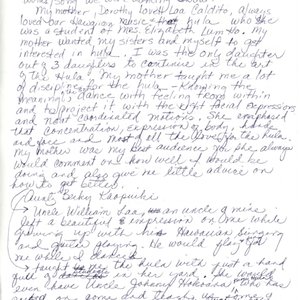 My mother, Dorothy Lovet Lao Caldito, always
loved Hawaiian music & hula who she
was a student of Mrs. Elizabeth Lum Ho. My
mother wanted my sisters and myself to get
interested in hula. I was the one daughter
out of 3 daughters to continue in the art
of the Hula. My mother taught me a lot
of discipline for the hula - knowing the
meaning of dance with feeling from within
and to project it with the right facial expressions
and most coordinated motions. She emphasized
that concentration, expression of body, hands
and face and most of all the love for the hula.
My mother was my best audience for she always
would comment on how well I would be
doing and also give me little advice on
how to get better.
(Aunt) Becky
Uncle William Lao, an uncle of mine
left a beautiful expression on me while
growing up with his Hawaiian singing
and guitar playing. He would play for
me while I danced
→ taught the hula with just a hand
full in her yard. She would
even have Uncle Johnny who has